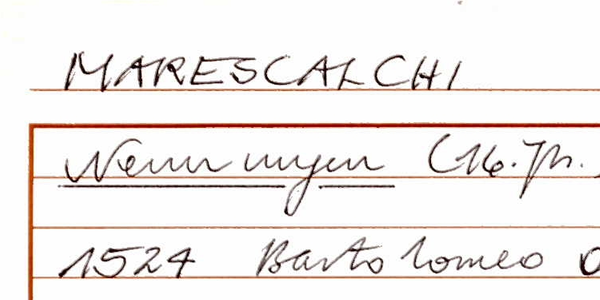 MARESCALCHI
Nennungen (16. Jh.
1524 Bartolomeo